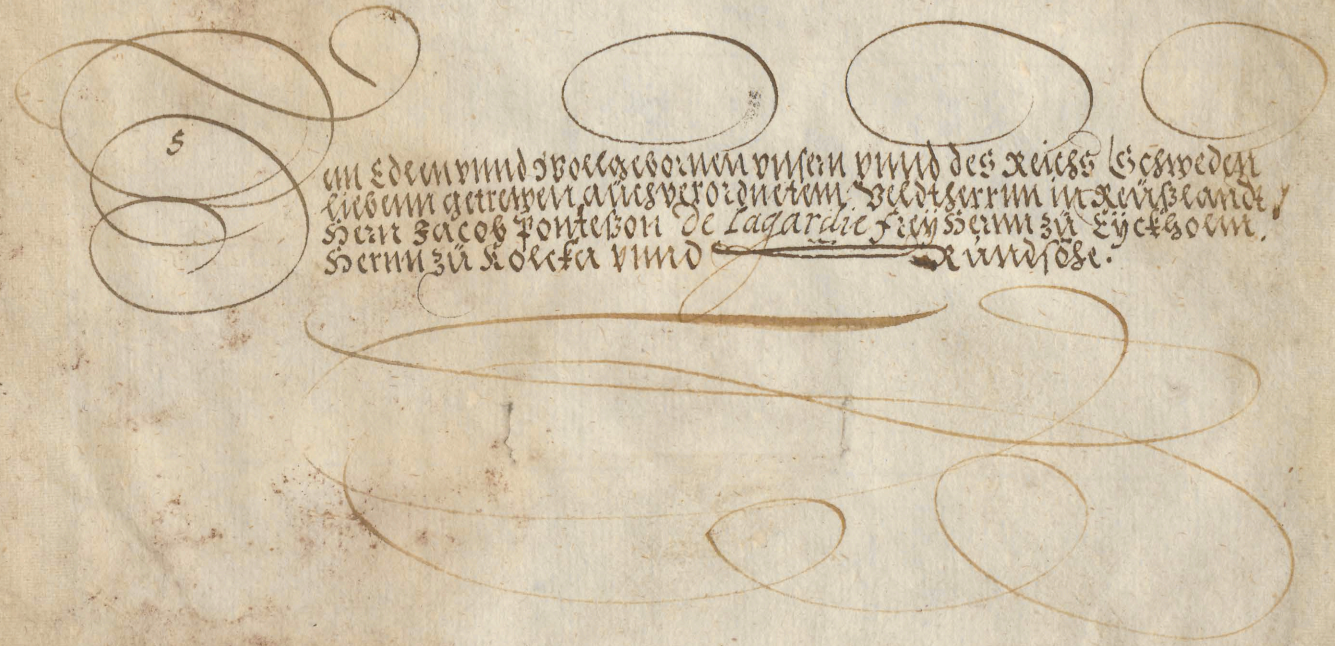 Dem Edlen vnnd Wollgebornen vnsern vnnd des Reichs Schweden
liebenn getrewen auch verordnetem Veldtherrnn in Reüßlandt,
Herr Jacob Ponteßon De Lagardie Freyhernn zü Eyckholm,
Hernn zü Kolcka vnnd Ründsöhe.